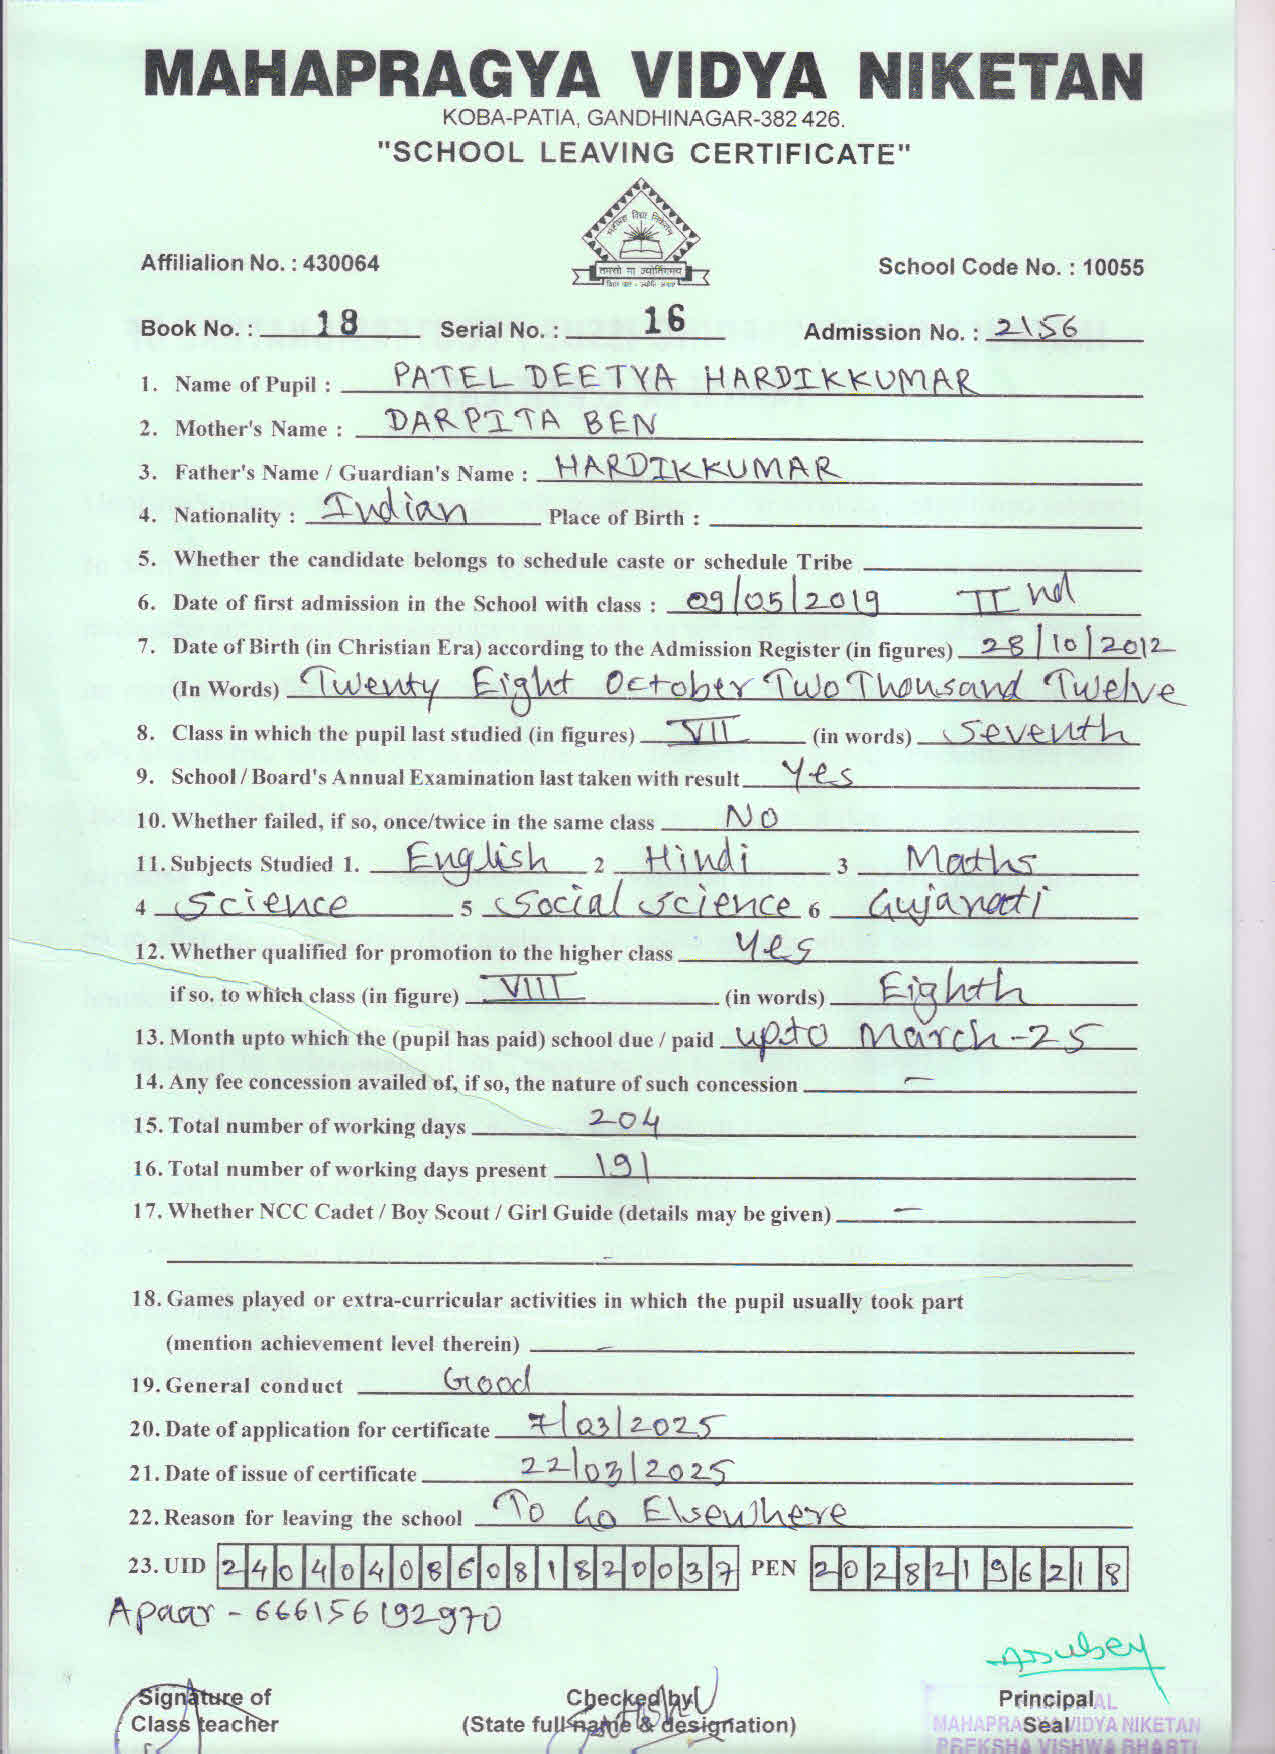 MAHAPRAGYA VIDYA NIKETAN
KOBA-PATIA, GANDHINAGAR-382 426.
"SCHOOL LEAVING CERTIFICATE"
महाप्रज्ञ विद्या निकेतन
तमसो मा ज्योतिर्गमय
Affilialion No. : 430064
School Code No. : 10055
Book No. : 18 Serial No. : 16 Admission No. : 2156
1. Name of Pupil : PATEL DEETYA HARDIKKUMAR
2. Mother's Name : DARPITA BEN
3. Father's Name / Guardian's Name : HARDIKKUMAR
4. Nationality : Indian Place of Birth :
5. Whether the candidate belongs to schedule caste or schedule Tribe
6. Date of first admission in the School with class : 09/05/2019 II nd
7. Date of Birth (in Christian Era) according to the Admission Register (in figures) 28/10/2012
(In Words) Twenty Eight October Two Thousand Twelve
8. Class in which the pupil last studied (in figures) VII (in words) Seventh
9. School / Board's Annual Examination last taken with result Yes
10. Whether failed, if so, once/twice in the same class NO
11. Subjects Studied 1. English 2 Hindi 3 Maths
4 Science 5 Social science 6 Gujarati
12. Whether qualified for promotion to the higher class Yes
if so, to which class (in figure) VIII (in words) Eighth
13. Month upto which the (pupil has paid) school due / paid upto March-25
14. Any fee concession availed of, if so, the nature of such concession —
15. Total number of working days 204
16. Total number of working days present 191
17. Whether NCC Cadet / Boy Scout / Girl Guide (details may be given) —
–
18. Games played or extra-curricular activities in which the pupil usually took part
(mention achievement level therein) –
19. General conduct Good
20. Date of application for certificate 7/03/2025
21. Date of issue of certificate 22/03/2025
22. Reason for leaving the school To Go Elsewhere
23. UID 240404086081820037 PEN 20282196218
Apaar - 666156192970
ADubey
Signature of Checked by Principal
Class teacher (State full name & designation) Seal
PRINCIPAL
MAHAPRAGYA VIDYA NIKETAN
PREKSHA VISHWA BHARTI